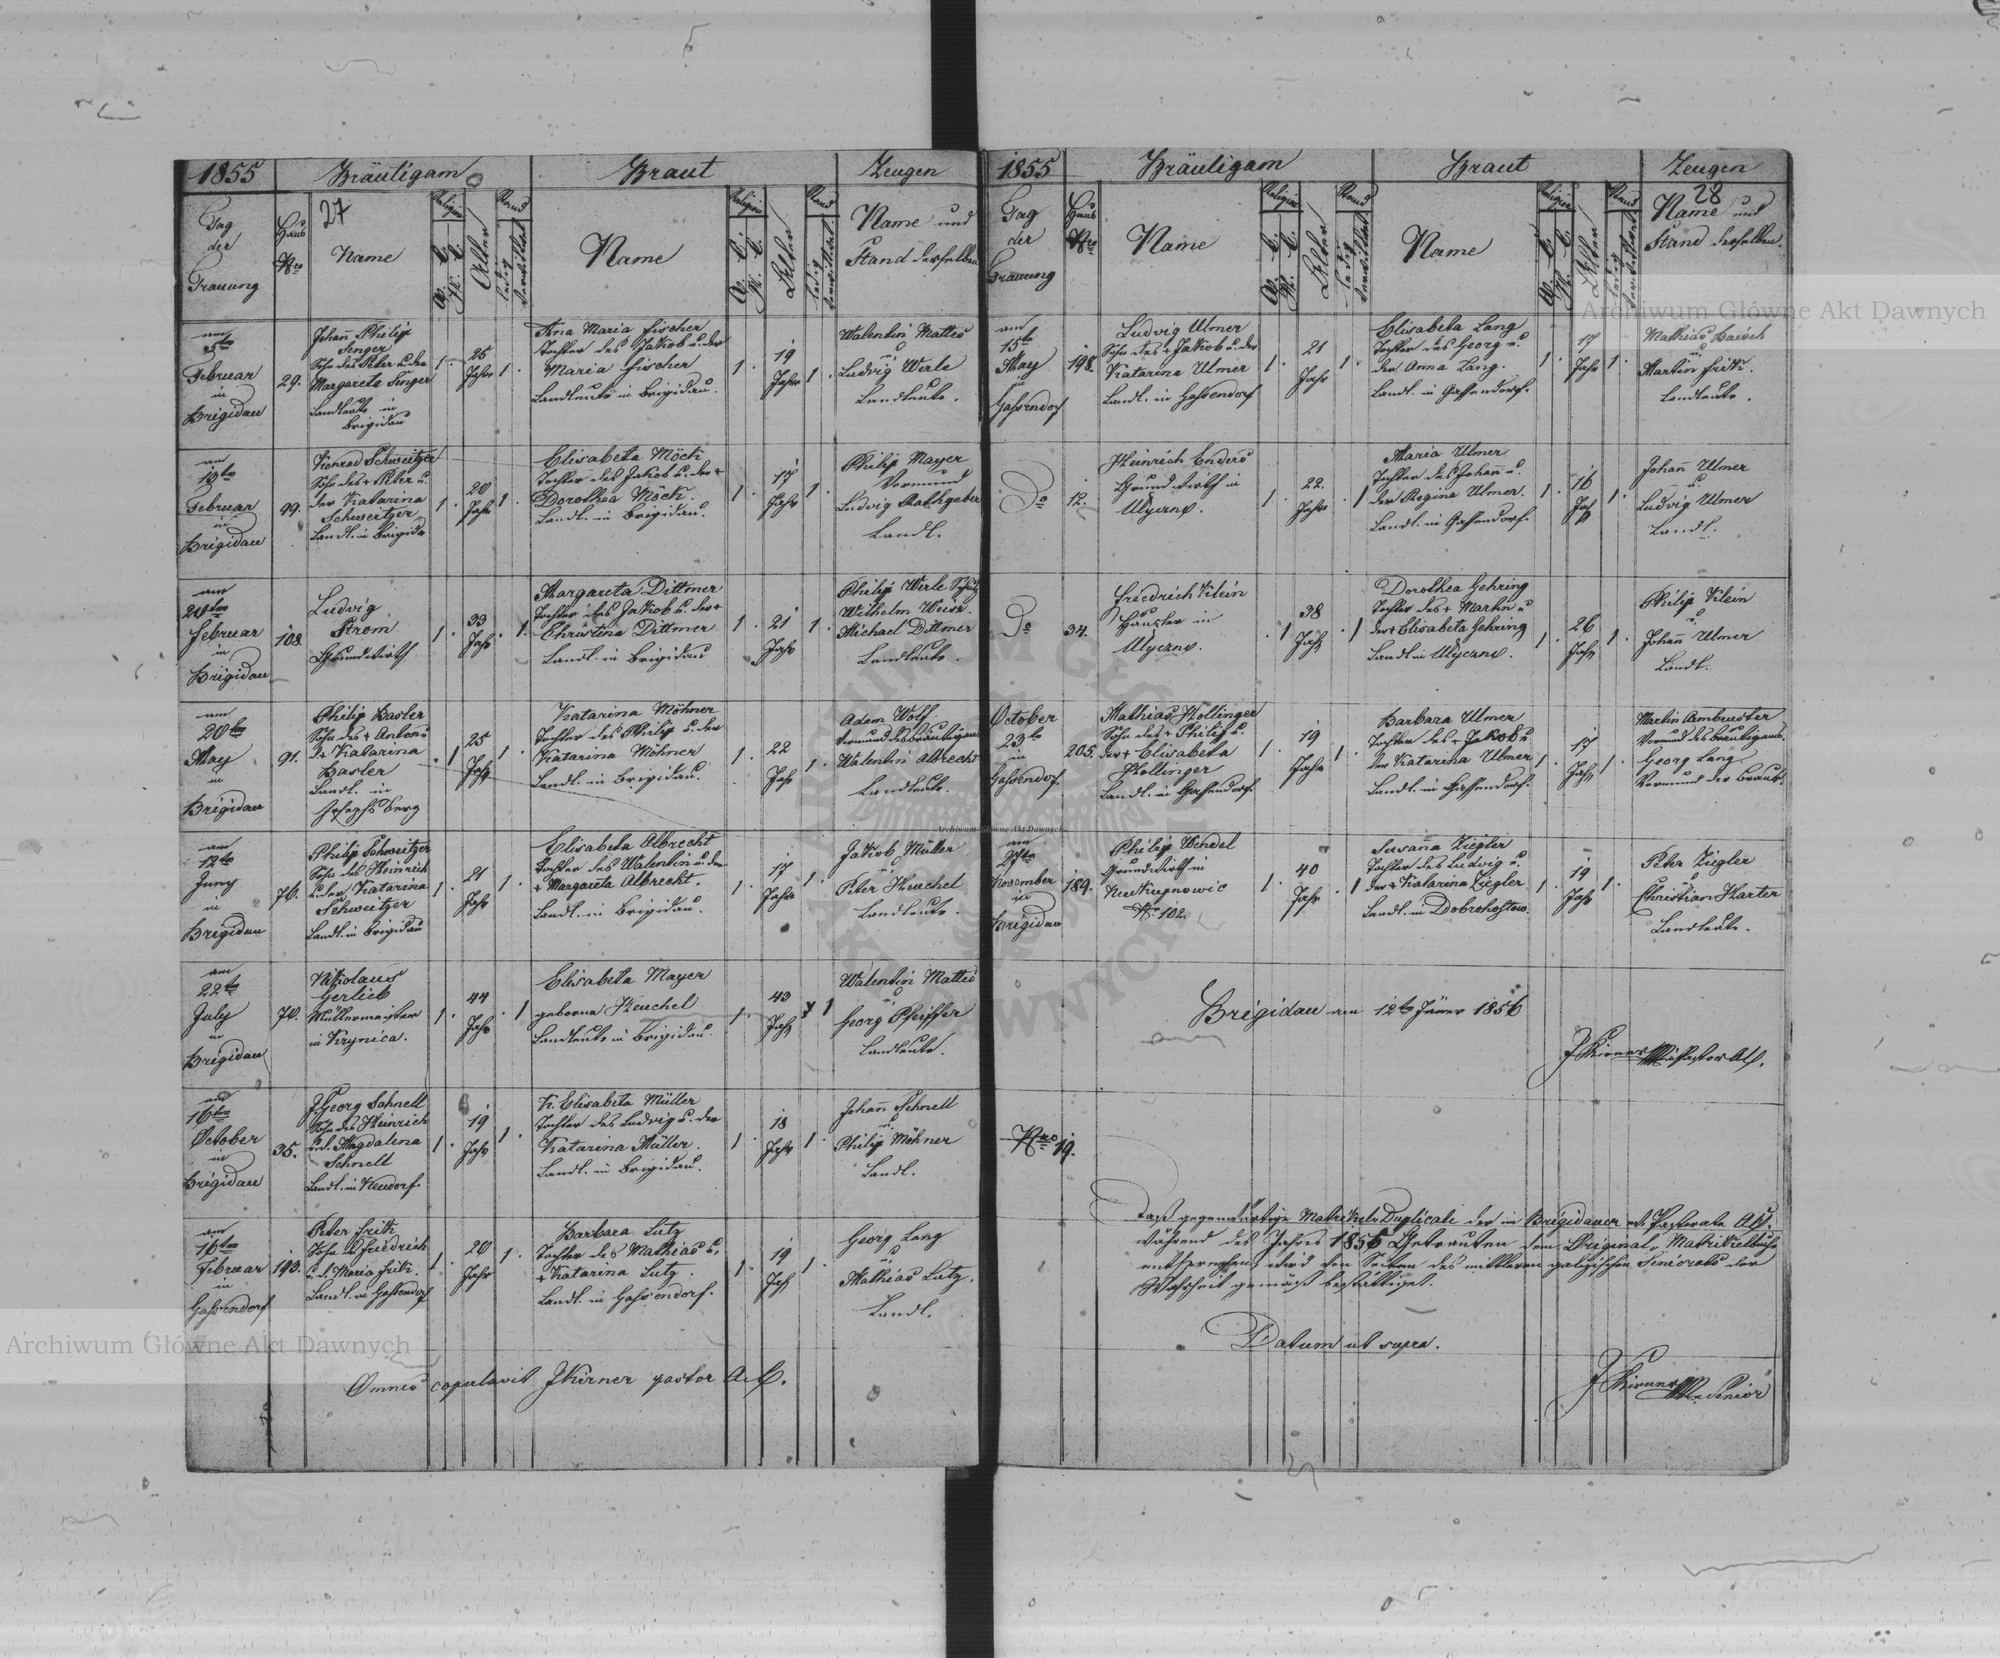 1855 Bräutigam Braut Zeugen
27
Tag der Trauung
Haus Nro
Name
Religion
A. C.
H. C.
Alter
Stand
ledig
verwittwet
Name
Religion
A. C.
H. C.
Alter
Stand
ledig
verwittwet
Name und
Stand derselben
am
Februar
in
Brigidau
29.
Johann Philip
Singer
Sohn des Peter u. der
Margareta Singer
Landleute in
Brigidau
1.
25
Jahre
1.
Ana Maria Fischer
Tochter des Jakob u. der
Maria Fischer
Landleute in Brigidau.
1.
19
Jahre
1.
Walentin Mattes
u
Ludvig Werle
Landleute.
am
13te
Februar
in
Brigidau
99.
Konrad Schweitzer
Sohn des + Peter u.
der Katarina
Schweitzer
Landl. in Brigidau
1.
20
Jahr
1.
Elisabeta Möck
Tochter des Jakob u. der +
Dorothea Möck.
Landl. in Brigidau.
1.
17
Jahre
1.
Philip Mayer
Vormund
Ludvig Rathgeber
Landl.
am
Februar
in
Brigidau
108.
Ludvig
Strom
Grundwirth
1.
33
Jahr
1.
Margareta Dittmer
Tochter des Jakob u. der +
Christina Dittmer
Landl. in Brigidau
1.
21
Jahr
1.
Philip Werle
Wilhelm
Michael Dittmer
Landleute.
am
20te
May
in
Brigidau
91.
Philip Basler
Sohn des + Anton u
der Katarina
Basler
Landl. in
Josephsberg
1
25
Jahr
1.
Katarina Möhner
Tochter des Philip u. der
Katarina Möhner
Landl. in Brigidau.
1.
22
Jahr
1.
Adam Wolf
Vormund des Bräutigams
Walentin Albrecht
Landleute.
am
12te
Juny
in
Brigidau
76.
Philip Schweitzer
Sohn des Heinrich
u. der Katarina
Schweitzer
Landl. in Brigidau
1.
21
Jahr
1.
Elisabeta Albrecht
Tochter des Walentin u. der
+ Margareta Albrecht.
Landl. in Brigidau.
1.
17
Jahre
1.
Jakob Müller
u
Peter Heuchel
Landleute.
am
22te
July
in
Brigidau
Nikolaus
Gerlieb
Müllermeister
in Krynica.
1.
44
Jahr
1
Elisabeta Mayer
geborne Heuchel
Landleute in Brigidau.
1.
43
Jahr
1
Walentin Mattes
u
Georg Pfeiffer
Landleute.
am
16ten
October
in
Brigidau
35.
J Georg Schnell
Sohn des Heinrich
u. d. Magdalena
Schnell
Landl. in Neudorf.
1.
19
Jahr
1.
K. Elisabeta Müller
Tochter des Ludvig u. der
Katarina Müller.
Landl. in Brigidau.
1.
18
Jahr
1.
Johann Schnell
u.
Philip Möhner
Landl.
am
16ten
Februar
in
Gassendorf
193.
Peter Fritz
Sohn d. Friedrich
u. d. Maria Fritz.
Landl. in Gassendorf
1.
20
Jahr
1.
Barbara Lutz
Tochter des Mathias u.
+ Katarina Lutz.
Landl. in Gassendorf.
1.
19
Jahr
1.
Georg Lang
u
Mathias Lutz.
Landl.
Omnes copulavit JKirner pastor A.C.
1855 Bräutigam Braut Zeugen
28
Tag der Trauung
Haus Nro
Name
Religion
A. C.
H. C.
Alter
Stand
ledig
verwittwet
Name
Religion
A. C.
H. C.
Alter
Stand
ledig
verwittwet
Name und
Stand derselben.
am
15te
May
in
Gassendorf
198.
Ludvig Ulmer
Sohn des + Jakob u. der
Katarina Ulmer
Landl. in Gassendorf
1.
21
Jahr
1.
Elisabeta Lang
Tochter des Georg u.
der Anna Lang.
Landl. in Gassendorf.
1.
17
Jahr
1.
Mathias Baisch
u
Martin Fritz.
Landleute.
Do
12.
Heinrich Enders
Grundwirth in
Ulyczno.
1.
22.
Jahr
1
Maria Ulmer
Tochter des Johann u.
der Regina Ulmer.
Landl. in Gassendorf.
1.
16
Jahr
1.
Johann Ulmer
u.
Ludvig Ulmer
Landl.
Do
34.
Friedrich Klein
Häusler in
Ulyczno.
1
38
Jahr
1
Dorothea Gehring
Tochter des + Martin u
der + Elisabeta Gehring
Landl in Ulyczno.
1.
26
Jahr
1.
Philip Klein
u
Johann Ulmer
Landl.
October
23te
in
Gassendorf
205.
Mathias Hollinger
Sohn des + Philip u.
der + Elisabeta
Hollinger
Landl. in Gassendorf.
1.
19
Jahre
1.
Barbara Ulmer
Tochter des + Jakob u
der Katarina Ulmer
Landl. in Gassendorf.
1.
17
Jahr
1.
Martin Armbruster
Vormund des Bräutigams.
Georg Lang
Vormund der Braut.
am
27te
November
in
Brigidau
189.
Philip Wendel
Grundwirth in
Neukupnowic
Nr. 102.
1.
40
Jahr
1
Susana Ziegler
Tochter des Ludvig u.
der + Katarina Ziegler
Landl. in Dobrohostow.
1.
19
Jahr
1.
Peter Ziegler
u
Christian Harter
Landleute.
Brigidau am 12te Jäner 1856
JKirner Pastor A.C.
Nro 19.
Daß gegenwärtige Matrikels Duplicate der im Brigidauer Pastorate A.C.
während des Jahres 1855 Getrauten dem Original-Matrikelbuche
entsprechen, wird von Seiten des mittleren galizischen Seniorats der
Wahrheit gemäß bestättiget.
Datum ut supra.
JKirner Senior
Archiwum Główne Akt Dawnych
Archiwum Główne Akt Dawnych
Archiwum Główne Akt Dawnych